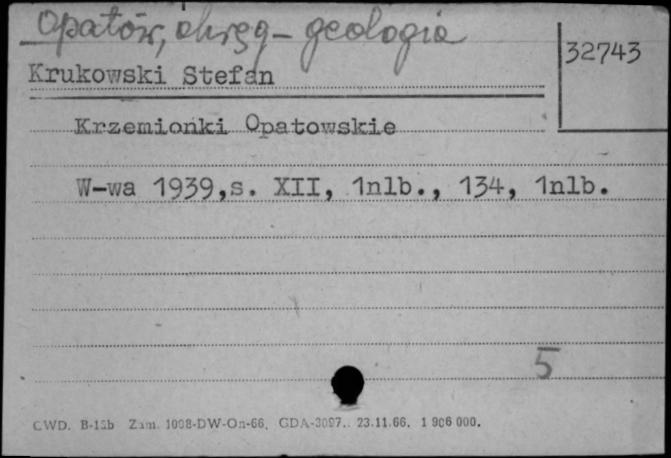 Opatów, okręg - geologia
32743
Krukowski Stefan
Krzemionki Opatowskie
W-wa 1939,s. XII, 1nlb., 134, 1nlb.
5
CWD. B-12b Zam. 1008-DW-On-66. GDA-3097.. 23.11.66. 1 906 000.